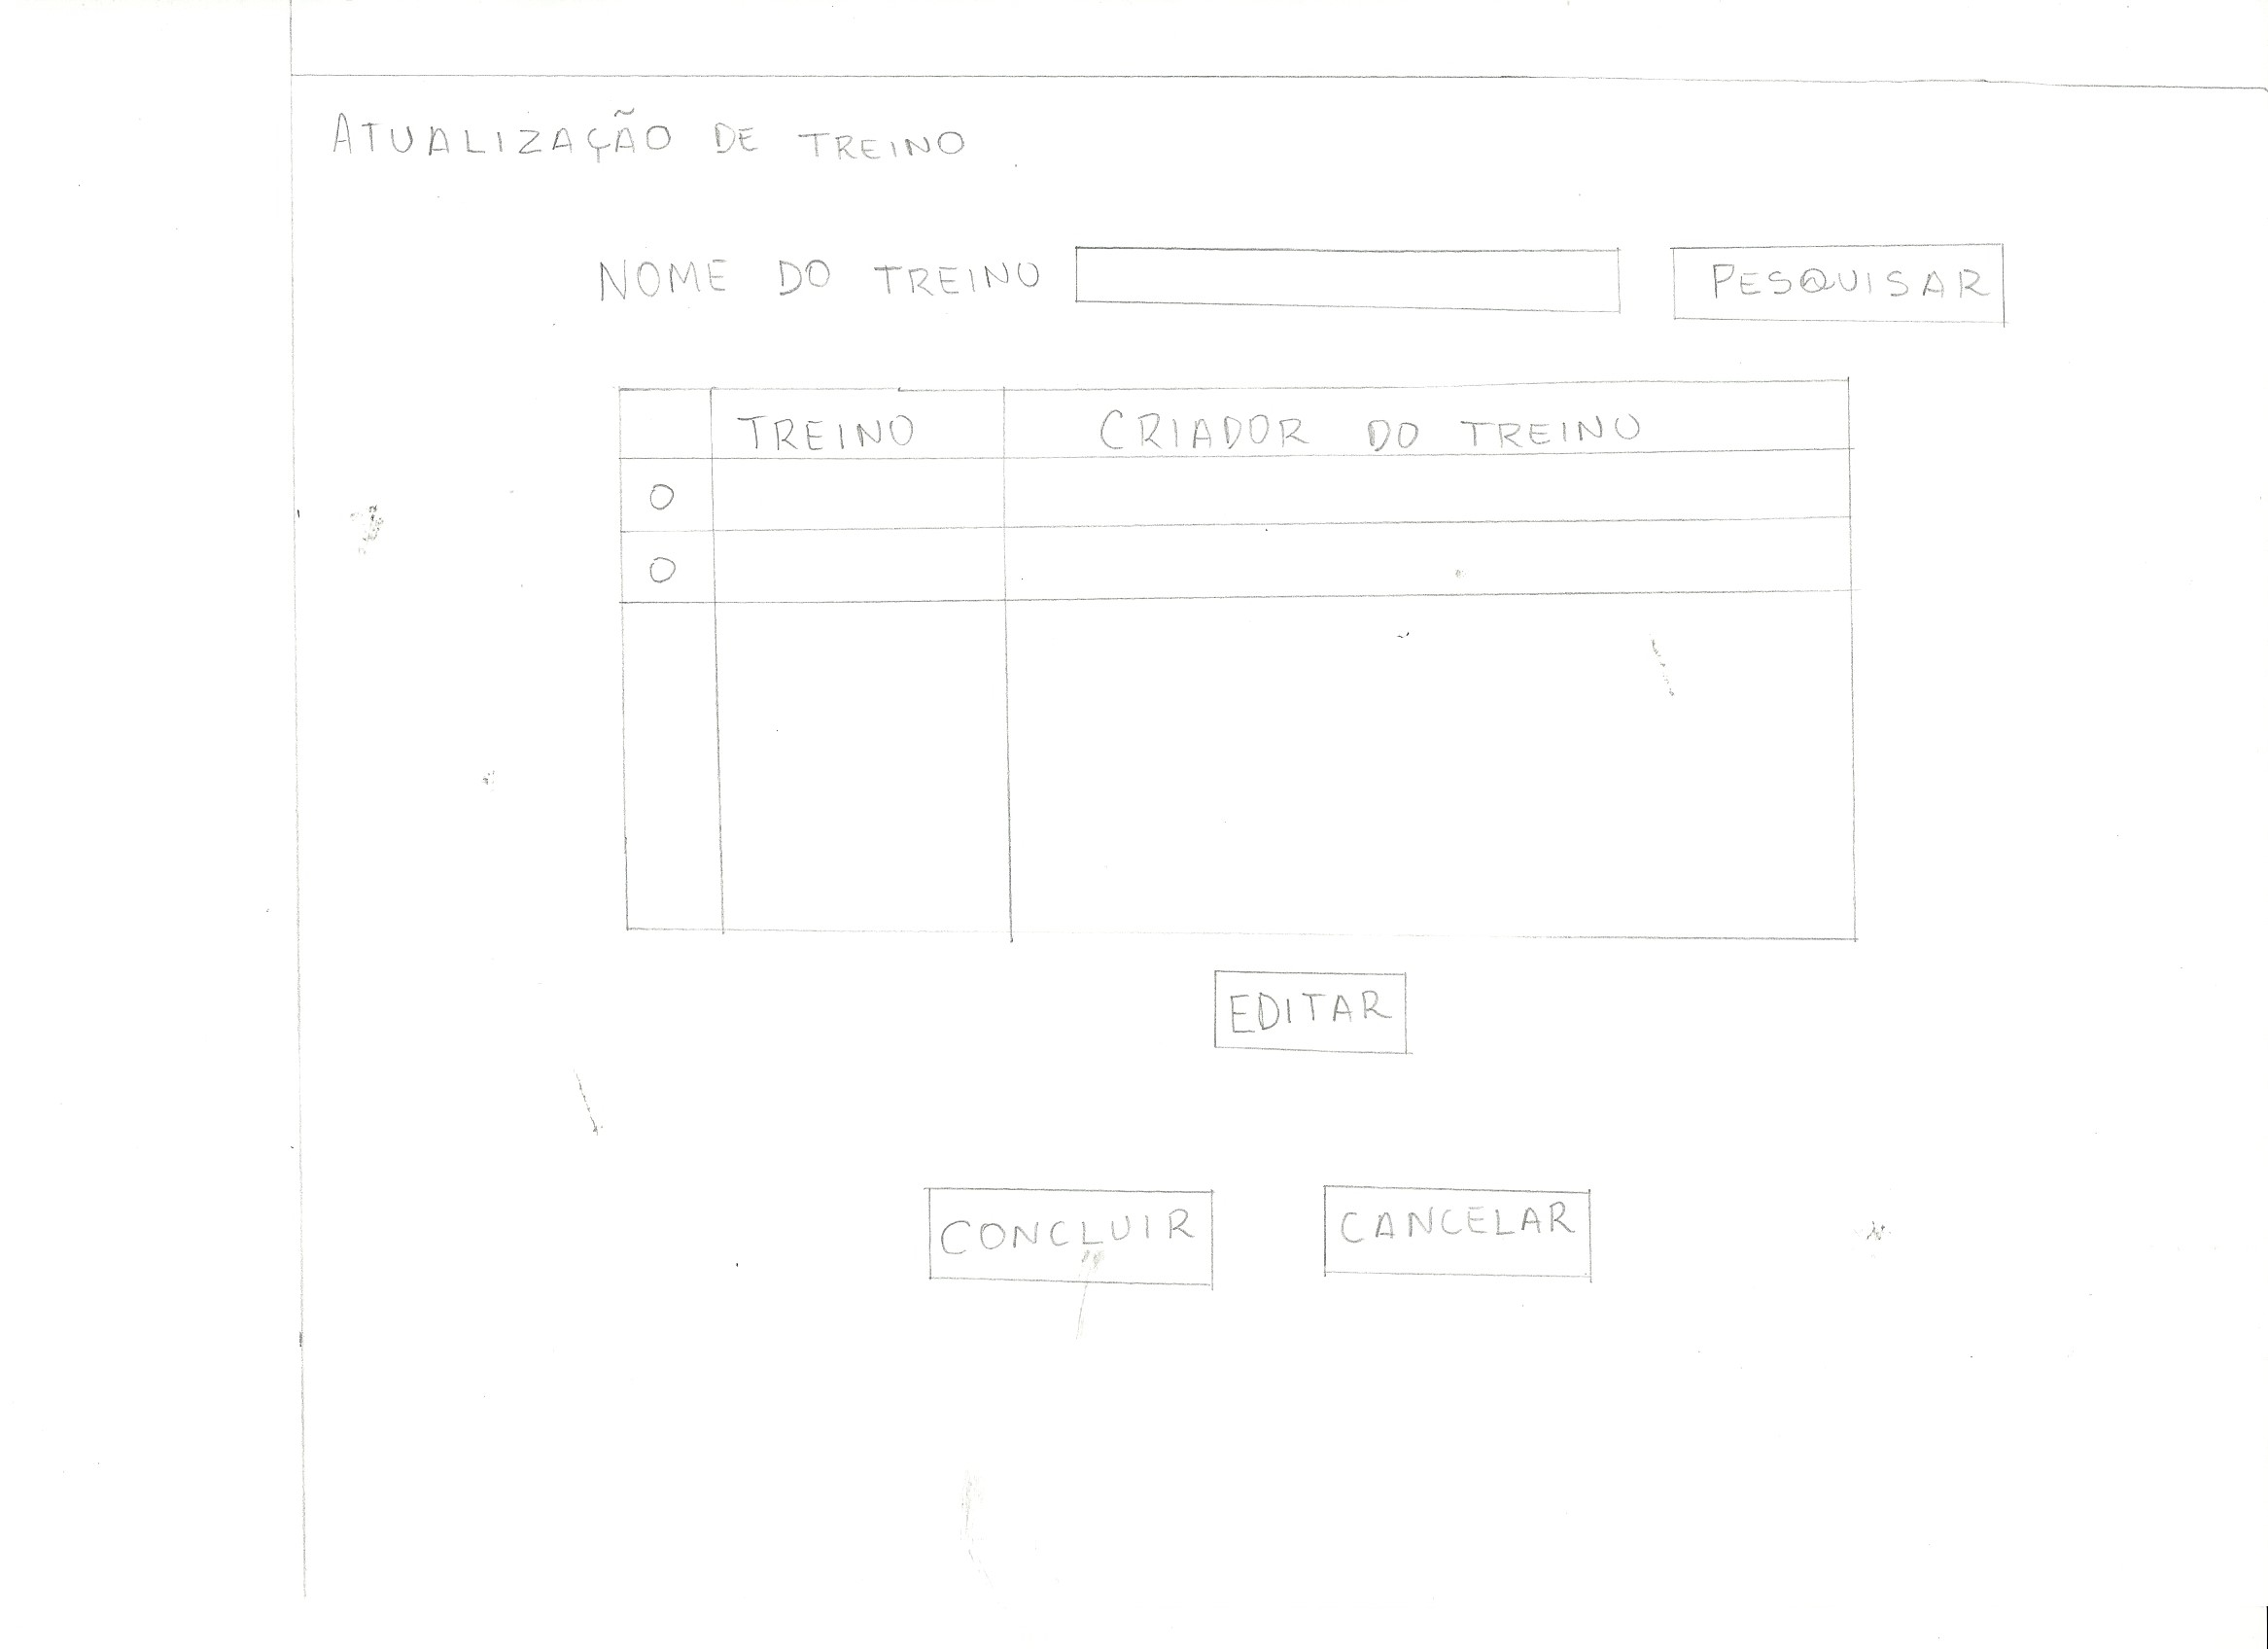 ATUALIZAÇÃO DE TREINO
NOME DO TREINO PESQUISAR
TREINO CRIADOR DO TREINO
EDITAR
CONCLUIR CANCELAR